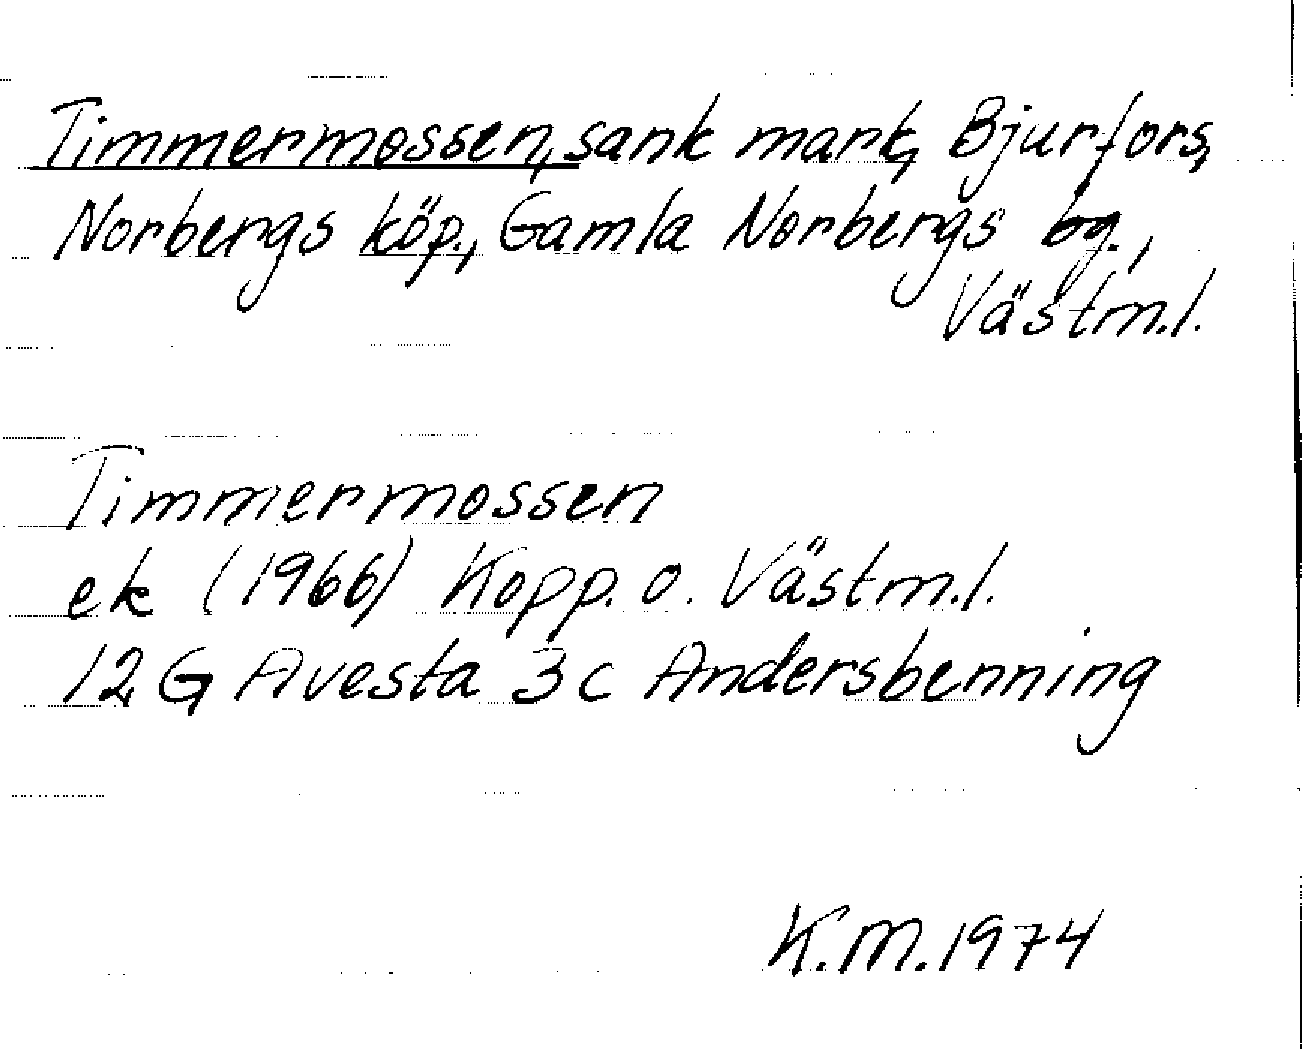 Timmermossen, sank mark, Bjurfors,
Norbergs köp., Gamla Norbergs bg.,
Västm.l.
Timmermossen
ek (1966) Kopp. o. Västm.l.
12 G Avesta 3c Andersbenning
K.M. 1974